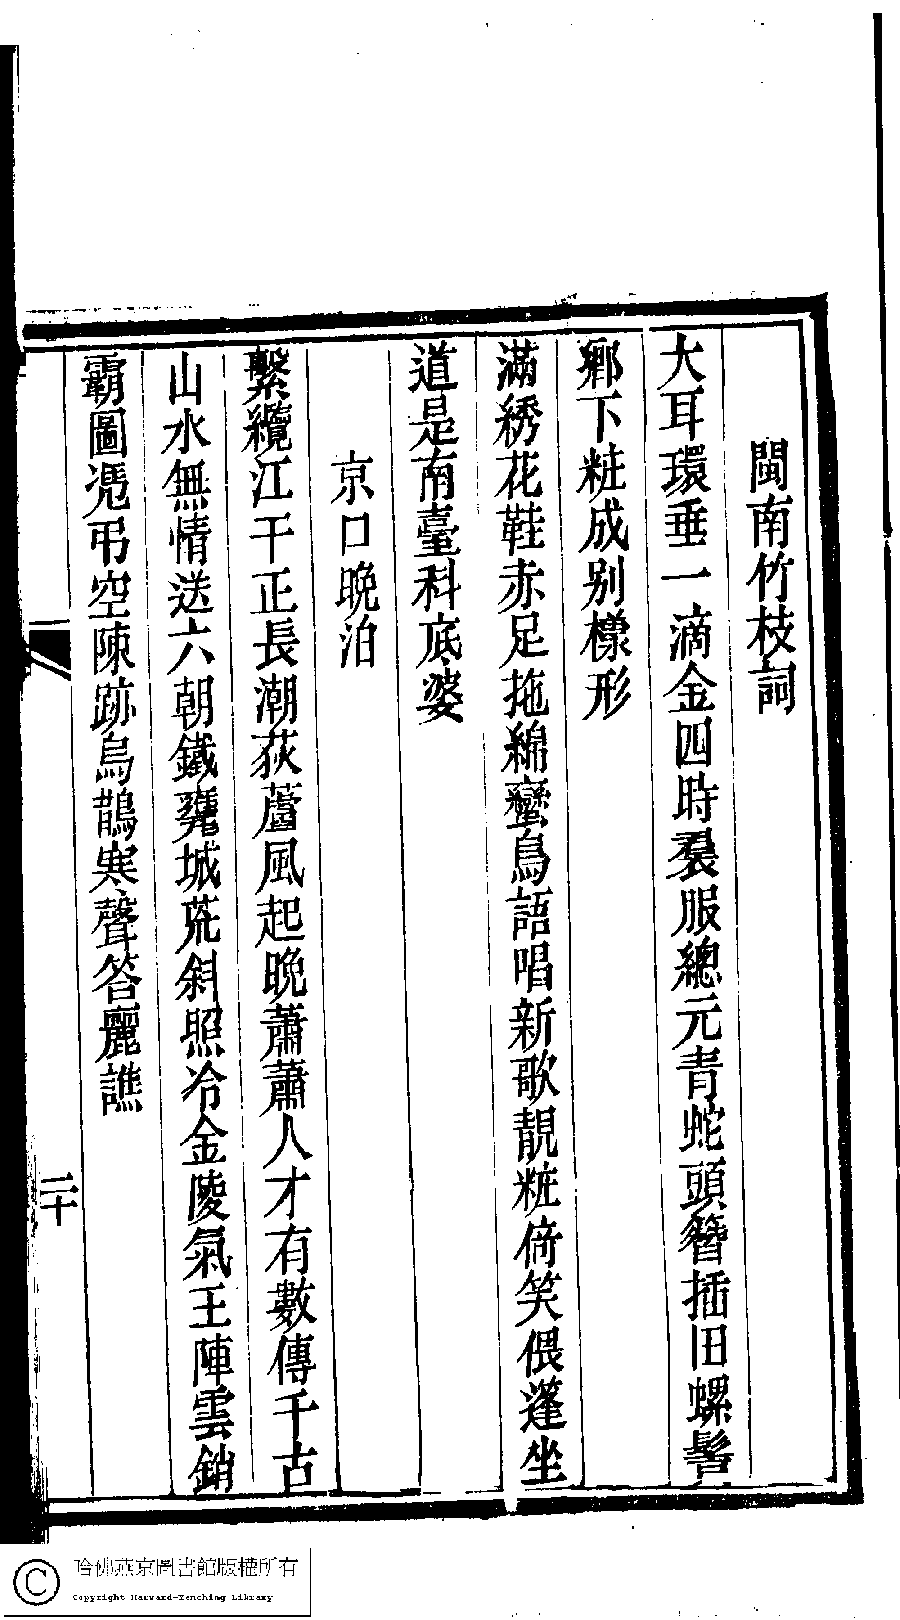 閩南竹枝詞
大耳環垂一滴金四時裠服總元青蛇頭簪插旧螺髻
鄉下粧成别樣形
滿綉花鞋赤足拖綿蠻鳥語唱新歌靚粧倚笑偎蓬坐
道是南臺科底婆
京口晚泊
繫纜江干正長潮荻蘆風起晚蕭蕭人才有數傳千古
山水無情送六朝鐵甕城荒斜照冷金陵氣王陣雲銷
霸圖憑弔空陳跡烏鵲寒聲答麗譙
二十
哈佛燕京圖書館版權所有
Copyright Harvard-Yenching Library